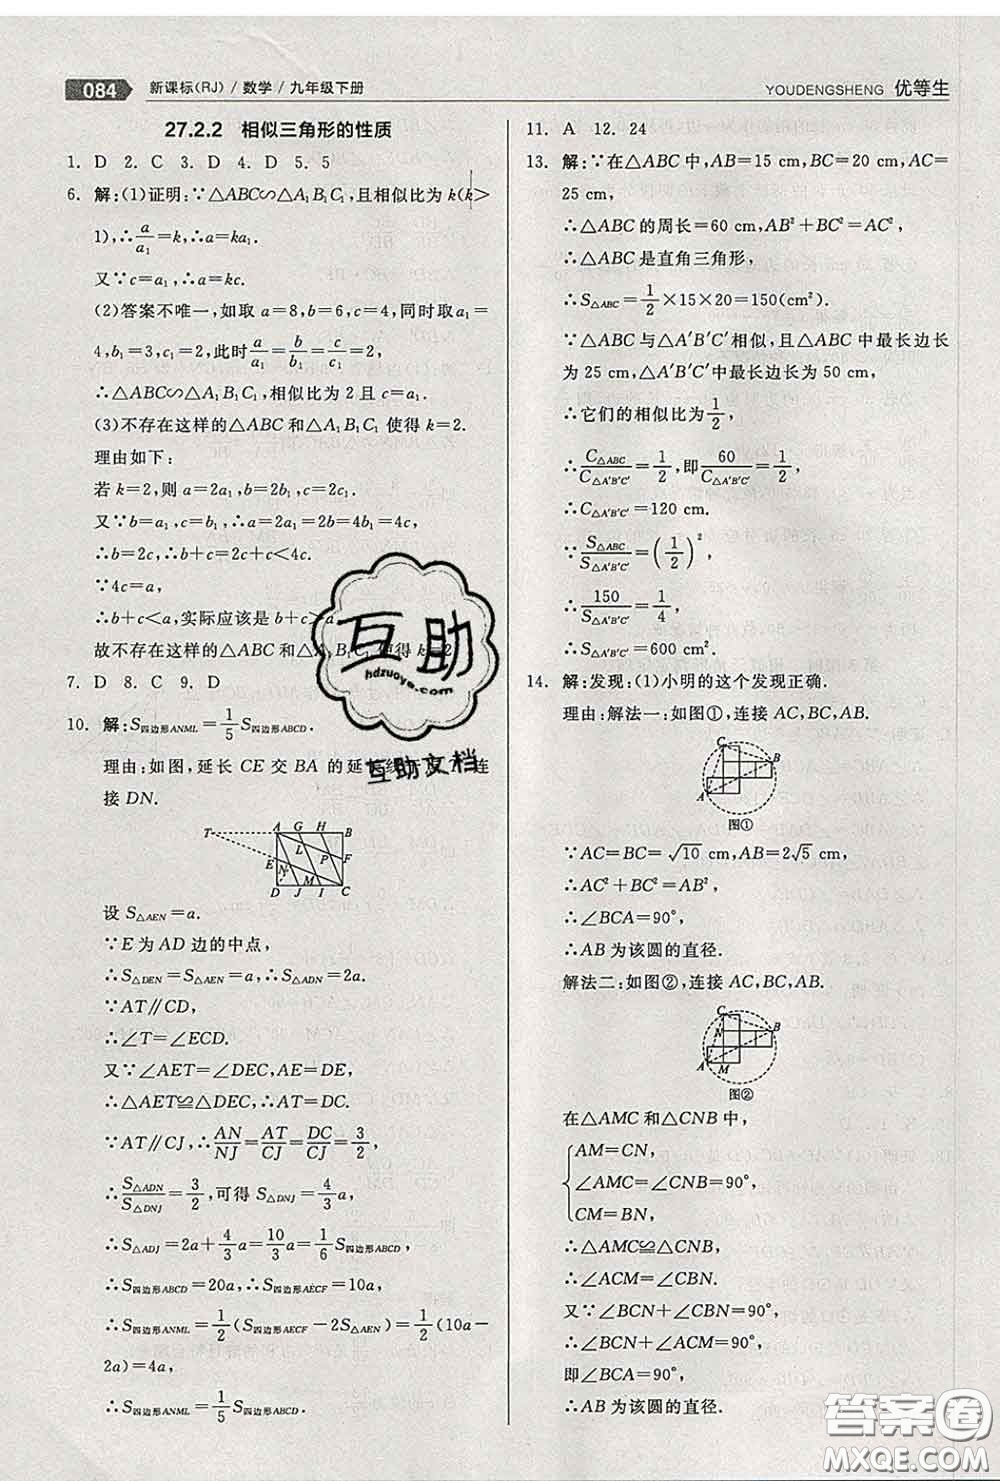 084 新课标(RJ)/数学/九年级下册
YOUDENGSHENG 优等生
27.2.2 相似三角形的性质
1. D 2. C 3. D 4. D 5. 5
6. 解:(1)证明:∵△ABC∽△A₁B₁C₁,且相似比为 k(k>
1),∴a/a₁=k,∴a=ka₁.
又∵c=a₁,∴a=kc.
(2)答案不唯一,如取 a=8,b=6,c=4,同时取a₁=
4,b₁=3,c₁=2,此时a/a₁=b/b₁=c/c₁=2,
∴△ABC∽△A₁B₁C₁,相似比为 2 且 c=a₁.
(3)不存在这样的△ABC 和△A₁B₁C₁ 使得 k=2.
理由如下:
若 k=2,则 a=2a₁,b=2b₁,c=2c₁.
又∵b=a₁,c=b₁,∴a=2a₁=2b=4b₁=4c,
∴b=2c,∴b+c=2c+c<4c.
∵4c=a,
∴b+c<a,实际应该是 b+c>a
故不存在这样的△ABC 和△A₁B₁C₁ 使得 k=2.
7. D 8. C 9. D
10. 解:S四边形ANML=1/5 S四边形ABCD.
理由:如图,延长 CE 交 BA 的延长线于点 T,连
接 DN.
T A G H B
L
E N P F
M
D J I C
设 S△AEN=a.
∵E 为 AD 边的中点,
∴S△DEN=S△AEN=a,∴S△ADN=2a.
∵AT∥CD,
∴∠T=∠ECD.
又∵∠AET=∠DEC,AE=DE,
∴△AET≌△DEC,∴AT=DC.
∵AT∥CJ,∴AN/NJ=AT/CJ=DC/CJ=3/2,
∴S△ADN/S△DNJ=3/2,可得 S△DNJ=4/3 a,
∴S△ADJ=2a+4/3 a=10/3 a=1/6 S四边形ABCD,
∴S四边形ABCD=20a,∴S四边形AECF=10a,
∴S四边形ANML=1/2(S四边形AECF−2S△AEN)=1/2(10a−
2a)=4a,
∴S四边形ANML=1/5 S四边形ABCD.
11. A 12. 24
13. 解:∵在△ABC 中,AB=15 cm,BC=20 cm,AC=
25 cm,
∴△ABC 的周长=60 cm,AB²+BC²=AC²,
∴△ABC 是直角三角形,
∴S△ABC=1/2×15×20=150(cm²).
∵△ABC 与△A′B′C′相似,且△ABC 中最长边长
为 25 cm,△A′B′C′中最长边长为 50 cm,
∴它们的相似比为1/2,
∴C△ABC/C△A′B′C′=1/2,即60/C△A′B′C′=1/2,
∴C△A′B′C′=120 cm.
∵S△ABC/S△A′B′C′=(1/2)²,
∴150/S△A′B′C′=1/4,
∴S△A′B′C′=600 cm².
14. 解:发现:(1)小明的这个发现正确.
理由:解法一:如图①,连接 AC,BC,AB.
C
B
A
图①
∵AC=BC=√10 cm,AB=2√5 cm,
∴AC²+BC²=AB²,
∴∠BCA=90°,
∴AB 为该圆的直径.
解法二:如图②,连接 AC,BC,AB.
C
N B
A M
图②
在△AMC 和△CNB 中,
AM=CN,
∠AMC=∠CNB=90°,
CM=BN,
∴△AMC≌△CNB,
∴∠ACM=∠CBN.
又∵∠BCN+∠CBN=90°,
∴∠BCN+∠ACM=90°,
即∠BCA=90°,
∴AB 为该圆的直径.
互助
hdzuoye.com
互助文档
答案圈
MXQE.COM